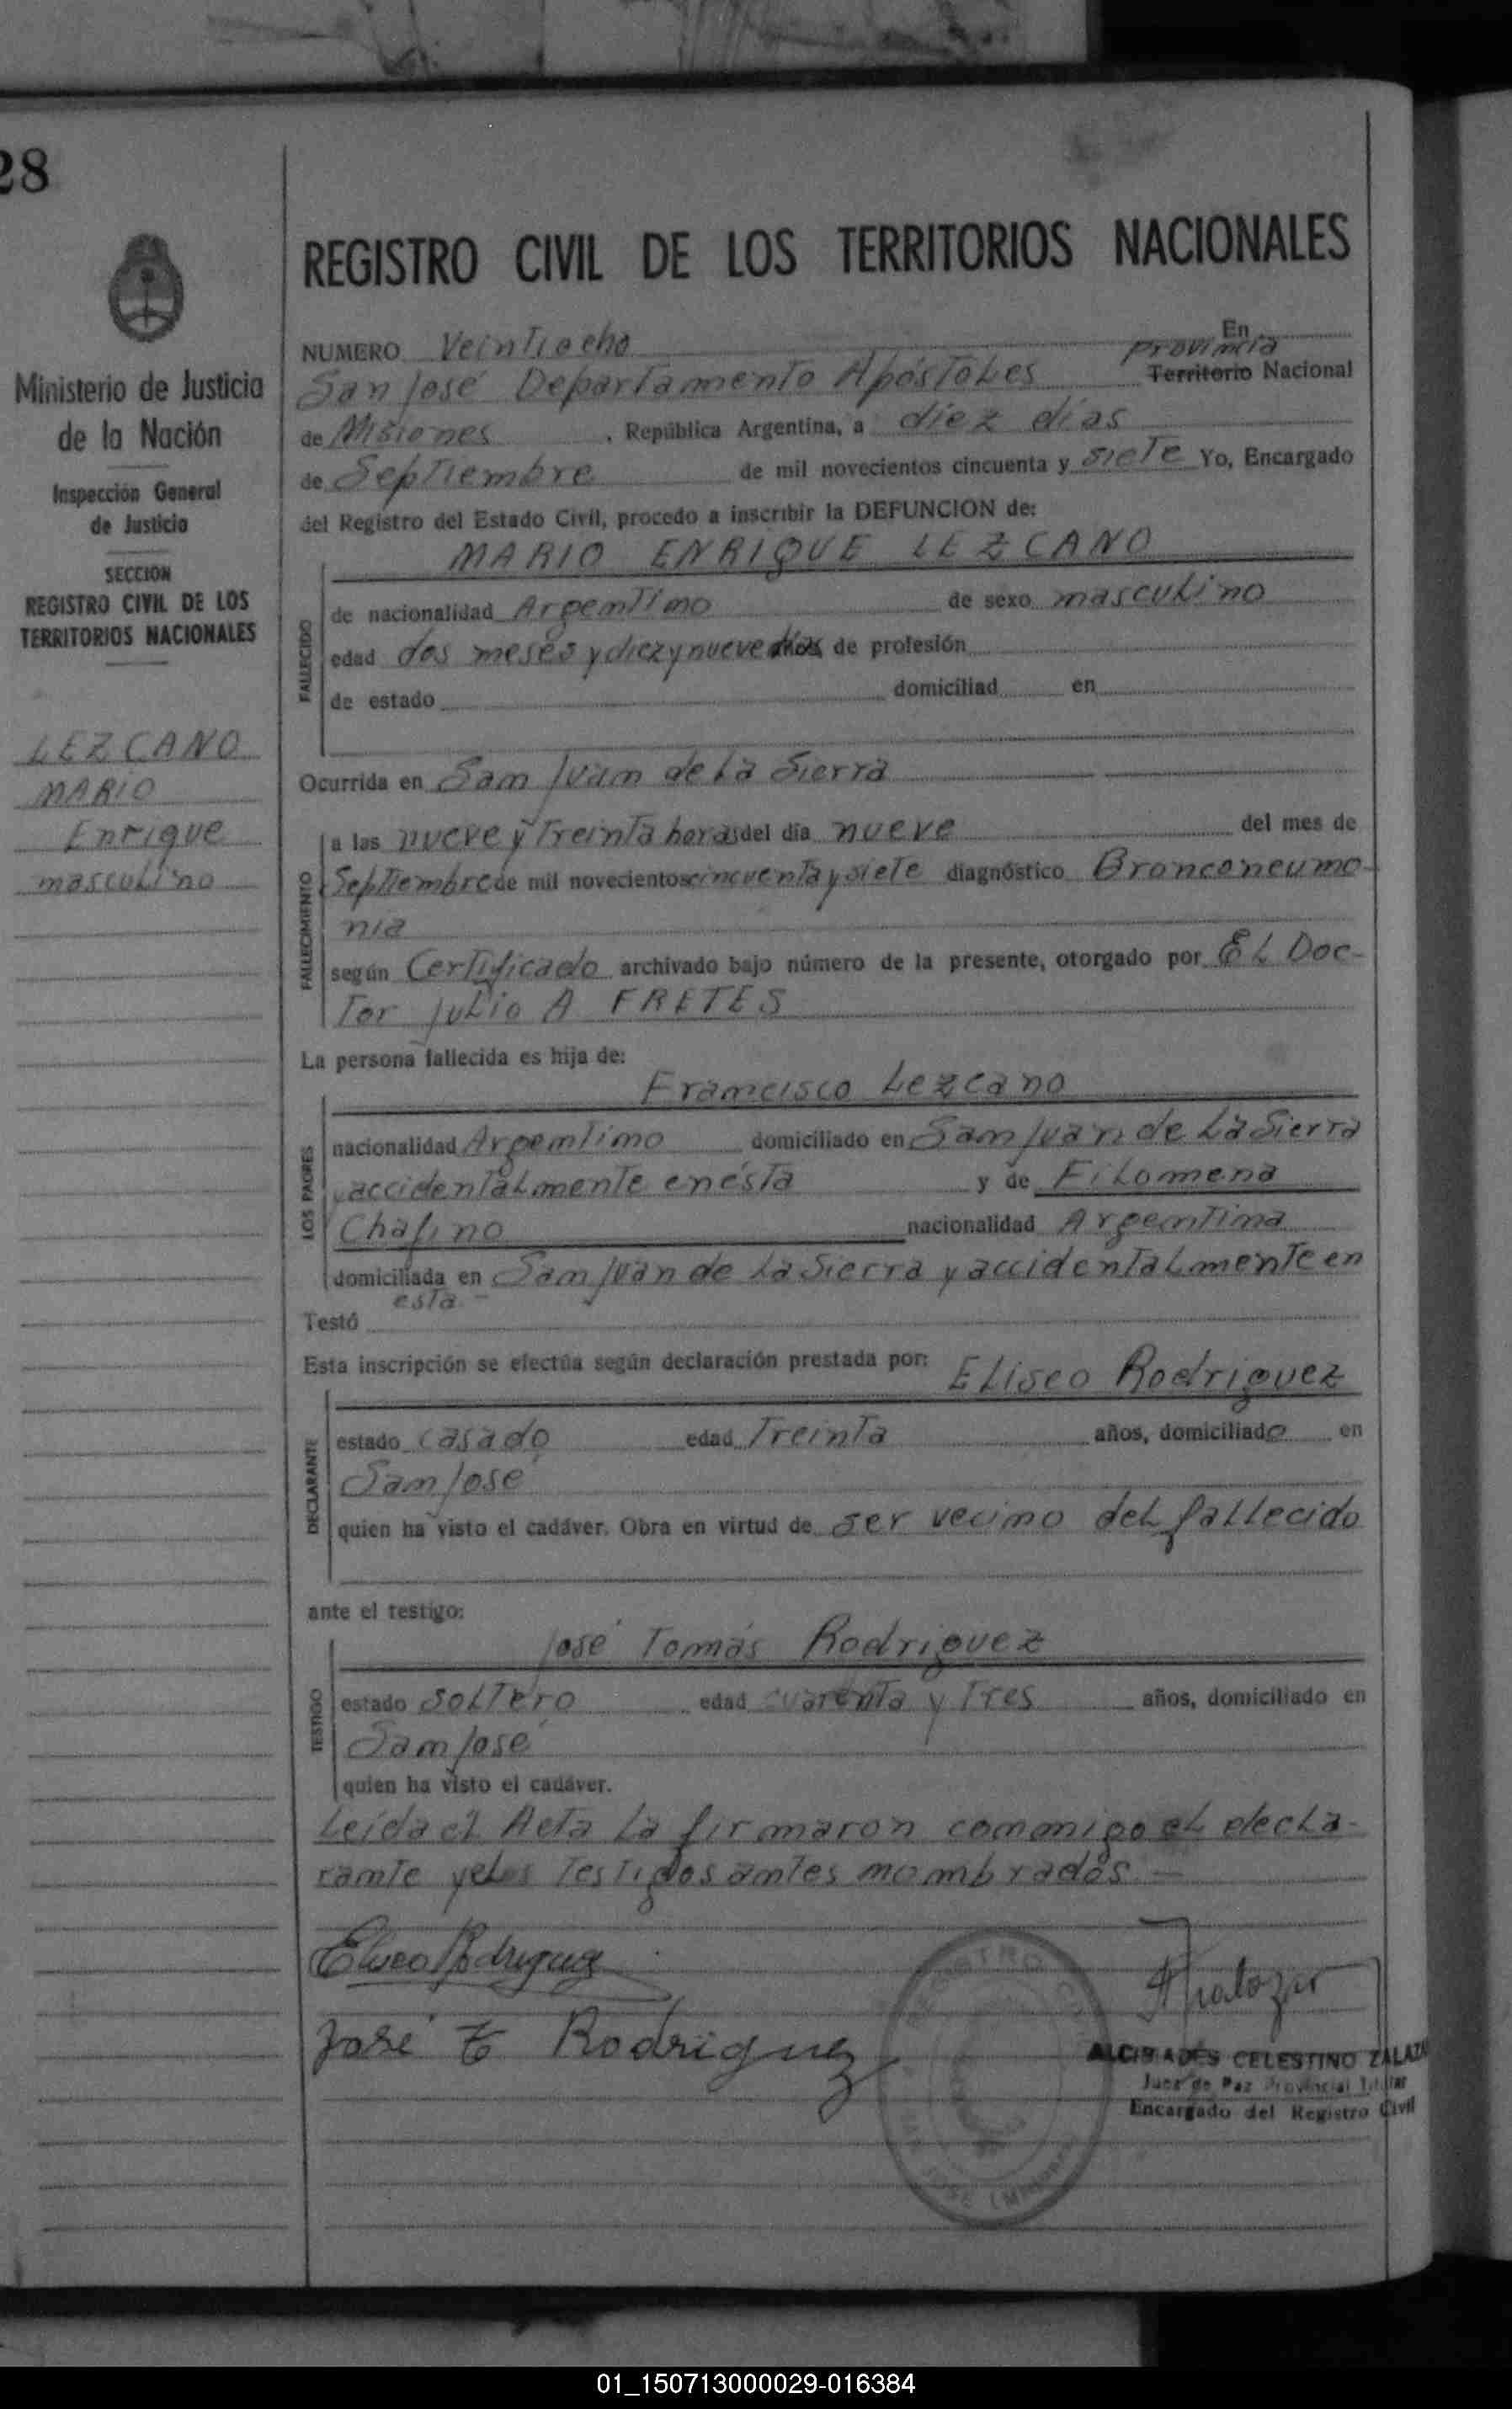 28
Ministerio de Justicia
de la Nación
Inspección General
de Justicia
SECCION
REGISTRO CIVIL DE LOS
TERRITORIOS NACIONALES
LEZCANO
MARIO
Enrique
masculino
REGISTRO CIVIL DE LOS TERRITORIOS NACIONALES
NUMERO Veintiocho En
provincia
San José Departamento Apóstoles Territorio Nacional
de Misiones , República Argentina, a diez días
de Septiembre de mil novecientos cincuenta y siete Yo, Encargado
del Registro del Estado Civil, procedo a inscribir la DEFUNCION de:
MARIO ENRIQUE LEZCANO
FALLECIDO
de nacionalidad Argentino de sexo masculino
edad dos meses y diez y nueve días de profesión
de estado domiciliad en
Ocurrida en San Juan de la Sierra
FALLECIMIENTO
a las nueve y Treinta horas del día nueve del mes de
Septiembre de mil novecientos cincuenta y siete diagnóstico Bronconeumo-
nia
según Certificado archivado bajo número de la presente, otorgado por EL Doc-
Tor Julio A FRETES
La persona fallecida es hija de:
Francisco Lezcano
LOS PADRES
nacionalidad Argentino domiciliado en San Juan de La Sierra
y accidentalmente en ésta y de Filomena
Chafino nacionalidad Argentina
domiciliada en San Juan de La Sierra y accidentalmente en
esta -
Testó
Esta inscripción se efectúa según declaración prestada por: Eliseo Rodriguez
DECLARANTE
estado casado edad Treinta años, domiciliado en
San José
quien ha visto el cadáver. Obra en virtud de ser vecino del fallecido
ante el testigo:
José Tomás Rodriguez
TESTIGO
estado soltero edad cuarenta y Tres años, domiciliado en
San José
quien ha visto el cadáver.
Leída el Acta la firmaron conmigo el decla-
rante y los Testigos antes nombrados.-
Eliseo Rodriguez
José T Rodriguez
ALCIBIADES CELESTINO ZALAZA
Juez de Paz Provincial Titular
Encargado del Registro Civil
01_150713000029-016384